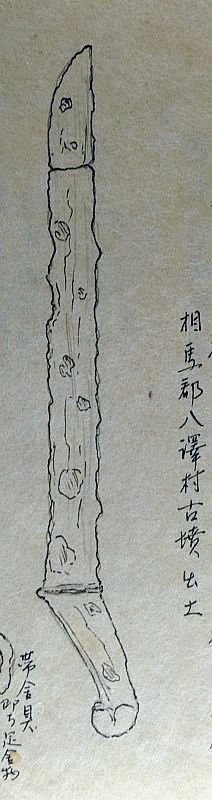 相馬郡八澤村古墳出土
帯金具
即チ足金物